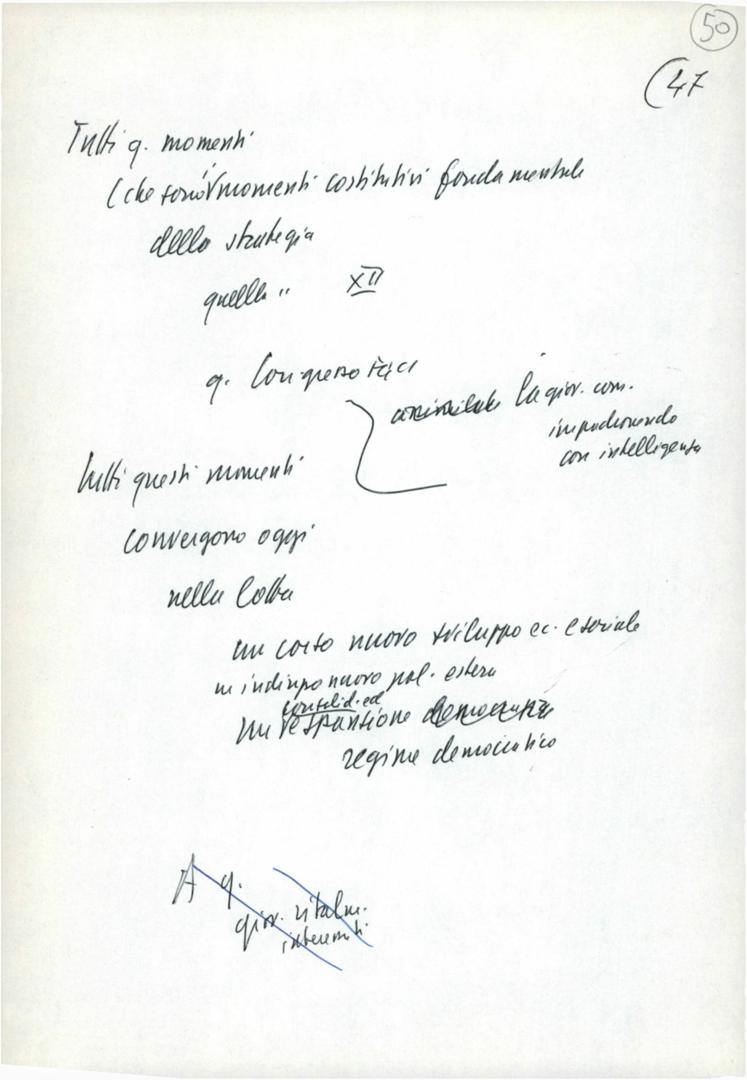 50
(47
Tutti q. momenti
(che sono momenti costitutivi fondamentale
della strategia
quella " XII
q. Congresso FGCI
la giov. com.
impadronendo
con intelligenza
tutti questi momenti
convergono oggi
nella lotta
un corso nuovo sviluppo ec. e sociale
un indirizzo nuovo pol. estera
consolid. ed
espansione democrazia
regime democratico
A q.
giov. italm.